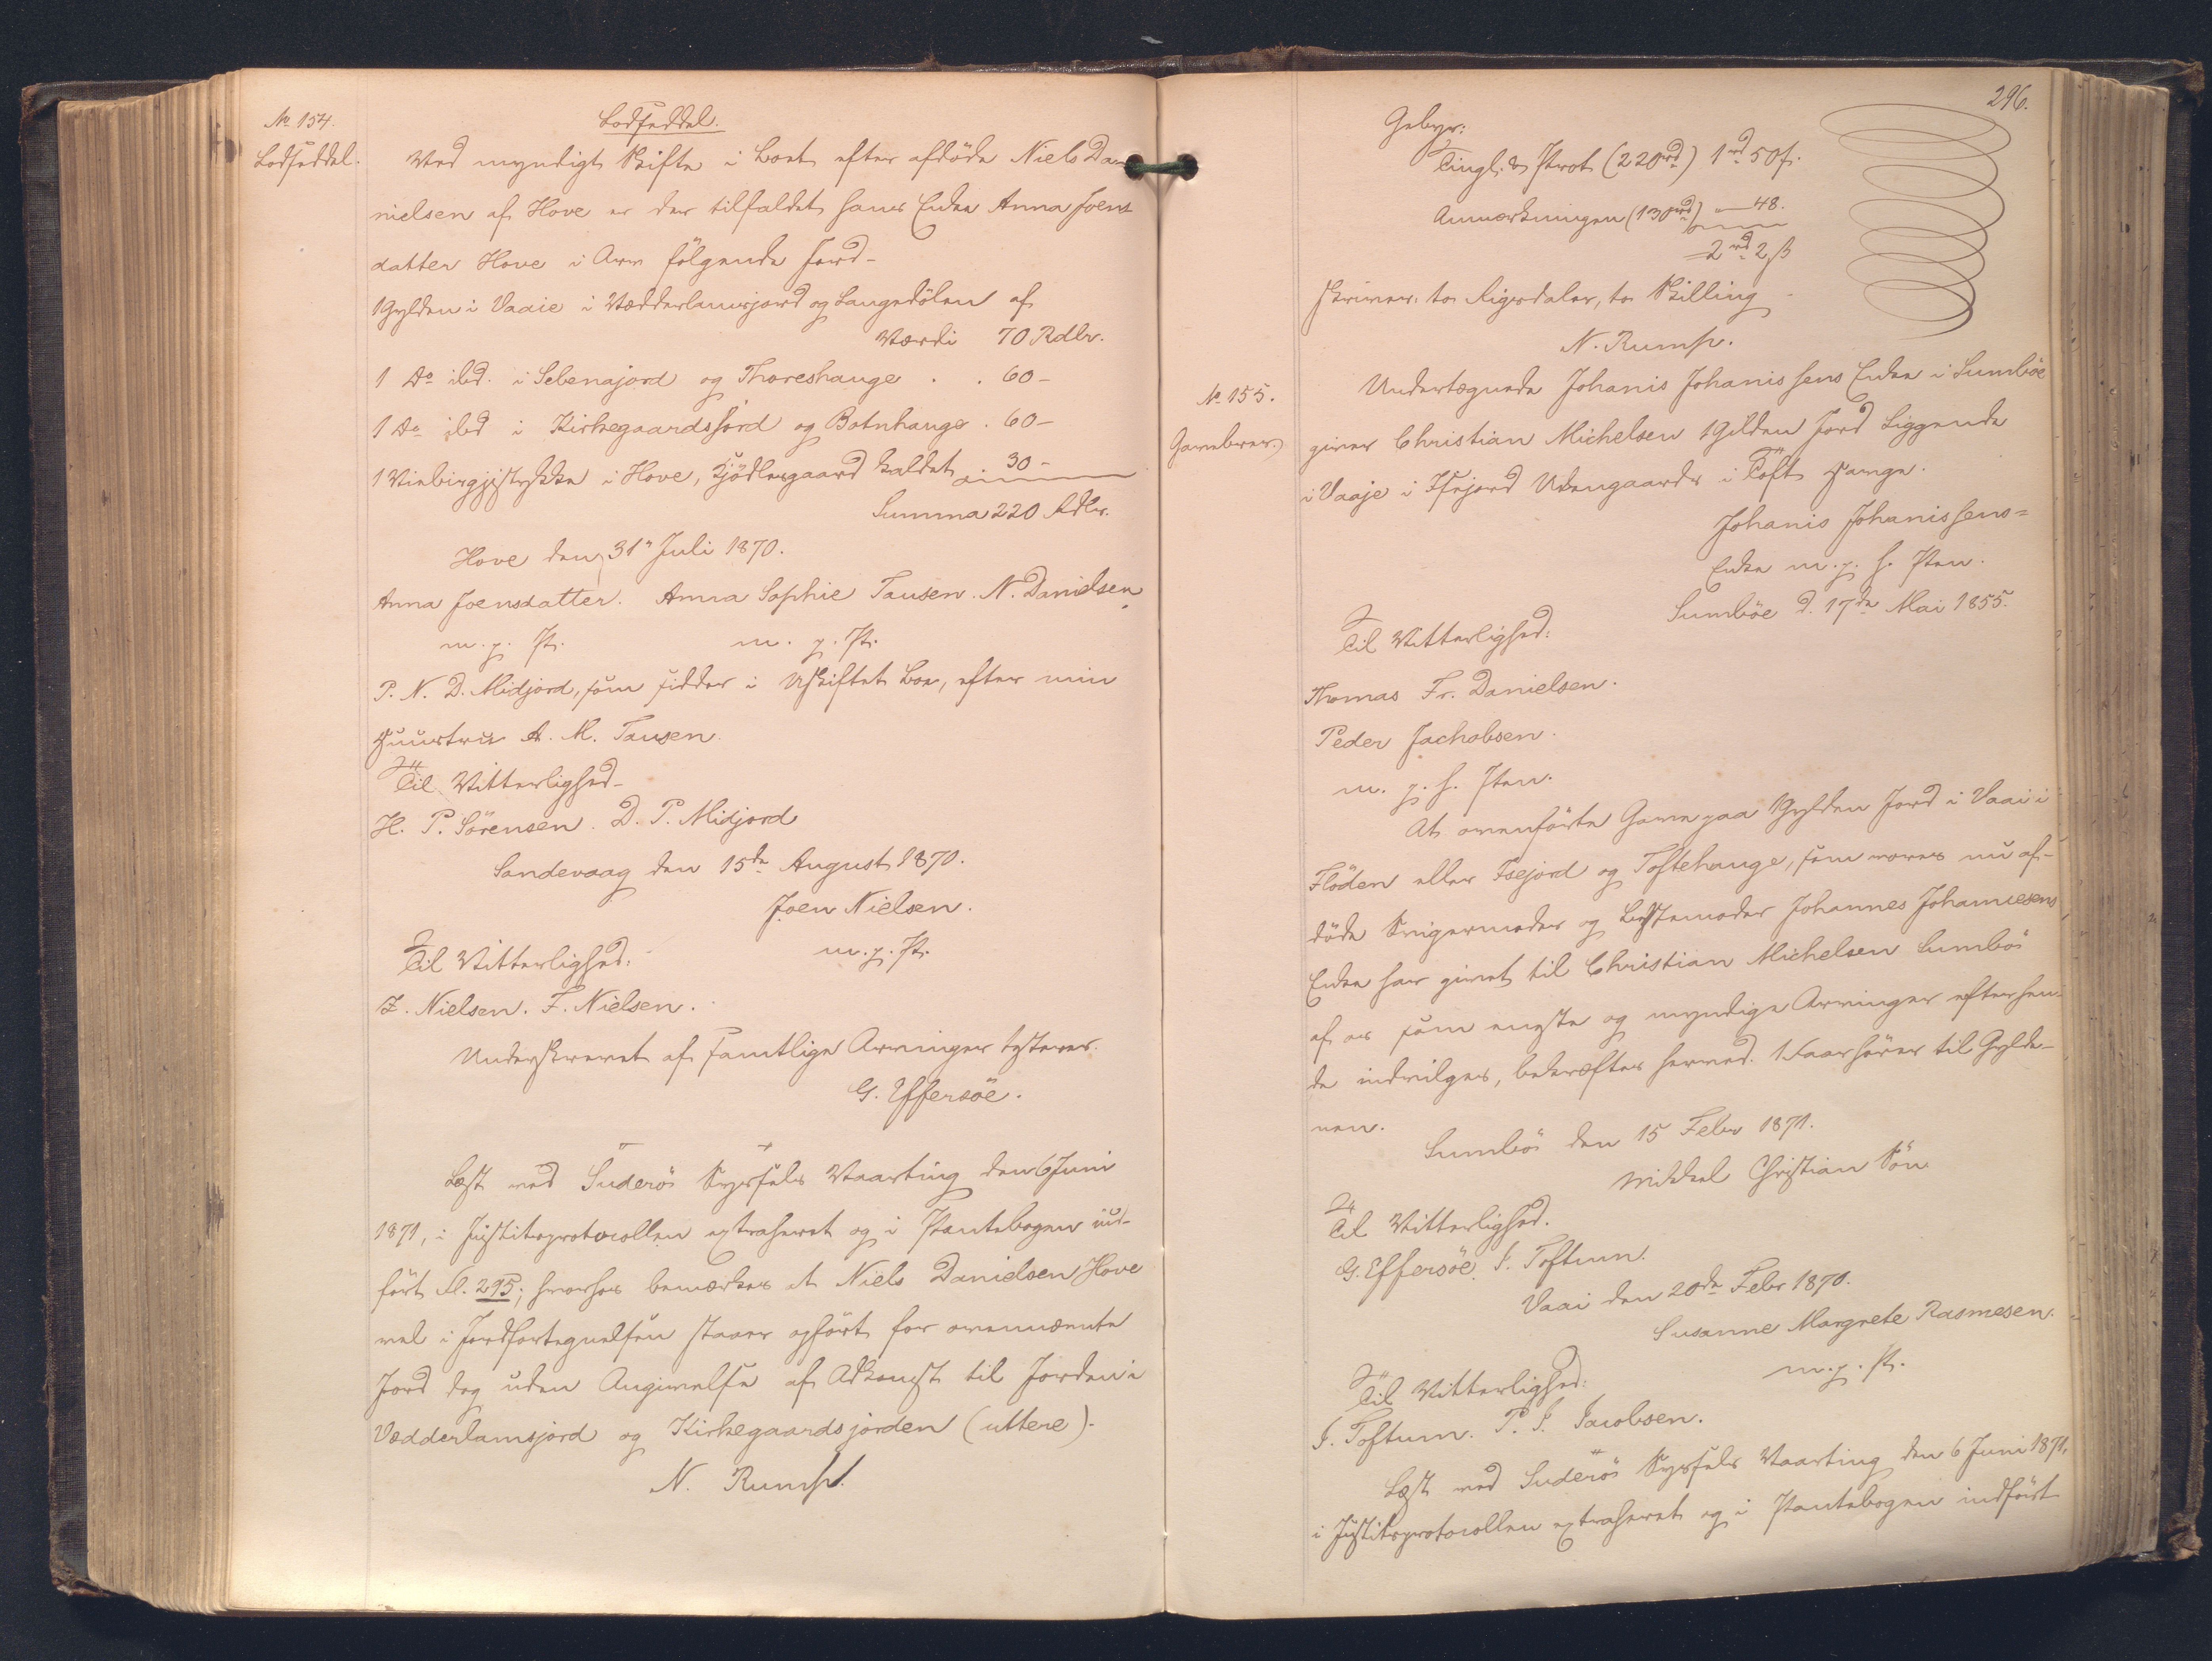 No 154.
Lodseddel.
Lodseddel.
Ved myndigt Skifte i Boet efter afdöde Niels Da-
nielsen af Hove er der tilfaldet hans Enke Anna Joens-
datter Hove i Arv fölgende Jord-
1 Gylden i Vaaie i Vædderlamsjord og Langedölen af
Værdi 70 Rdlr.
1 Do ibd. i Selenajord og Thoreshauge . . 60-
1 Do ibd i Kirkegaardsjord og Botnhauge . 60-
1 Viebirgjistykke i Hove, Kjödlesgaard kaldet . 30-
Summa 220 Rdlr.
Hove den 31" Juli 1870.
Anna Joensdatter. Anna Sophie Tausen. N. Danielsen
m. p. P. m. p. P.
P. N. D. Midjord, som sidder i Uskiftet Boe, efter min
Huustru A. M. Tausen.
Til Vitterlighed-
H. P. Sörensen. D. P. Midjord
Sandevaag den 15de August 1870.
Joen Nielsen.
m. p. P.
Til Vitterlighed:
Z. Nielsen. F. Nielsen.
Underskrevet af samtlige Arvinger testerer
G. Effersöe.
Læst ved Suderö Syssels Vaarting den 6 Juni
1871, i Justitsprotocollen extraheret og i Pantebogen ind-
fört Fl. 295; hvorhos bemærkes at Niels Danielsen Hove
vel i Jordfortegnelsen staaer opfört for ovennævnte
Jord dog uden Angivelse af Adkomst til Jorden i
Vædderlamsjord og Kirkegaardsjorden (uttere).
N. Rump.
296.
Gebyr:
Tingl. & Prot (220rd) 1rd 50 s.
Anmærkningen (130rd) " 48.
2rd 2 ß
skriver: to Rigsdaler, to Skilling
N. Rump.
No 155.
Gavebrev.
Undertegnede Johanis Johanissens Enke i Sumböe
giver Christian Michelsen 1 Gilden Jord Liggende
i Vaaje i Isejord Udengaards i Toft Hauge.
Johanis Johanissens=
Enke m. p. h. Pen.
Sumböe d. 17de Mai 1855.
Til Vitterlighed:
Thomas Fr. Danielsen.
Peder Jachobsen.
m. p. h. Pen.
At ovenförte Gave paa 1 Gylden Jord i Vaai i
Flöden eller Isejord og Toftehauge, som vores nu af-
döde Svigermoder og Bestemoder Johannes Johannesens
Enke har givet til Christian Michelsen Sumbö
af os som eneste og myndige Arvinger efter hen-
de indvilges, bekræftes hermed. 1 Faar hörer til Gylde-
nen.
Sumbö den 15 Febr 1871.
Mikkel Christian Sön
Til Vitterlighed.
G. Effersöe. J. Toftum.
Vaai den 20de Febr 1870.
Susanne Margrete Rasmesen.
m. p. P.
Til Vitterlighed:
J. Toftum. P. J. Jacobsen.
Læst ved Suderö Syssels Vaarting den 6 Juni 1871,
i Justitsprotocollen extraheret og i Pantebogen indfört